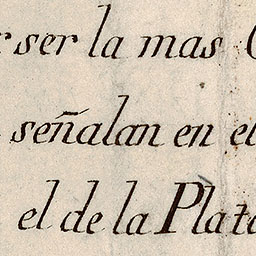 ser la mas
señalan en el
el de la Plata